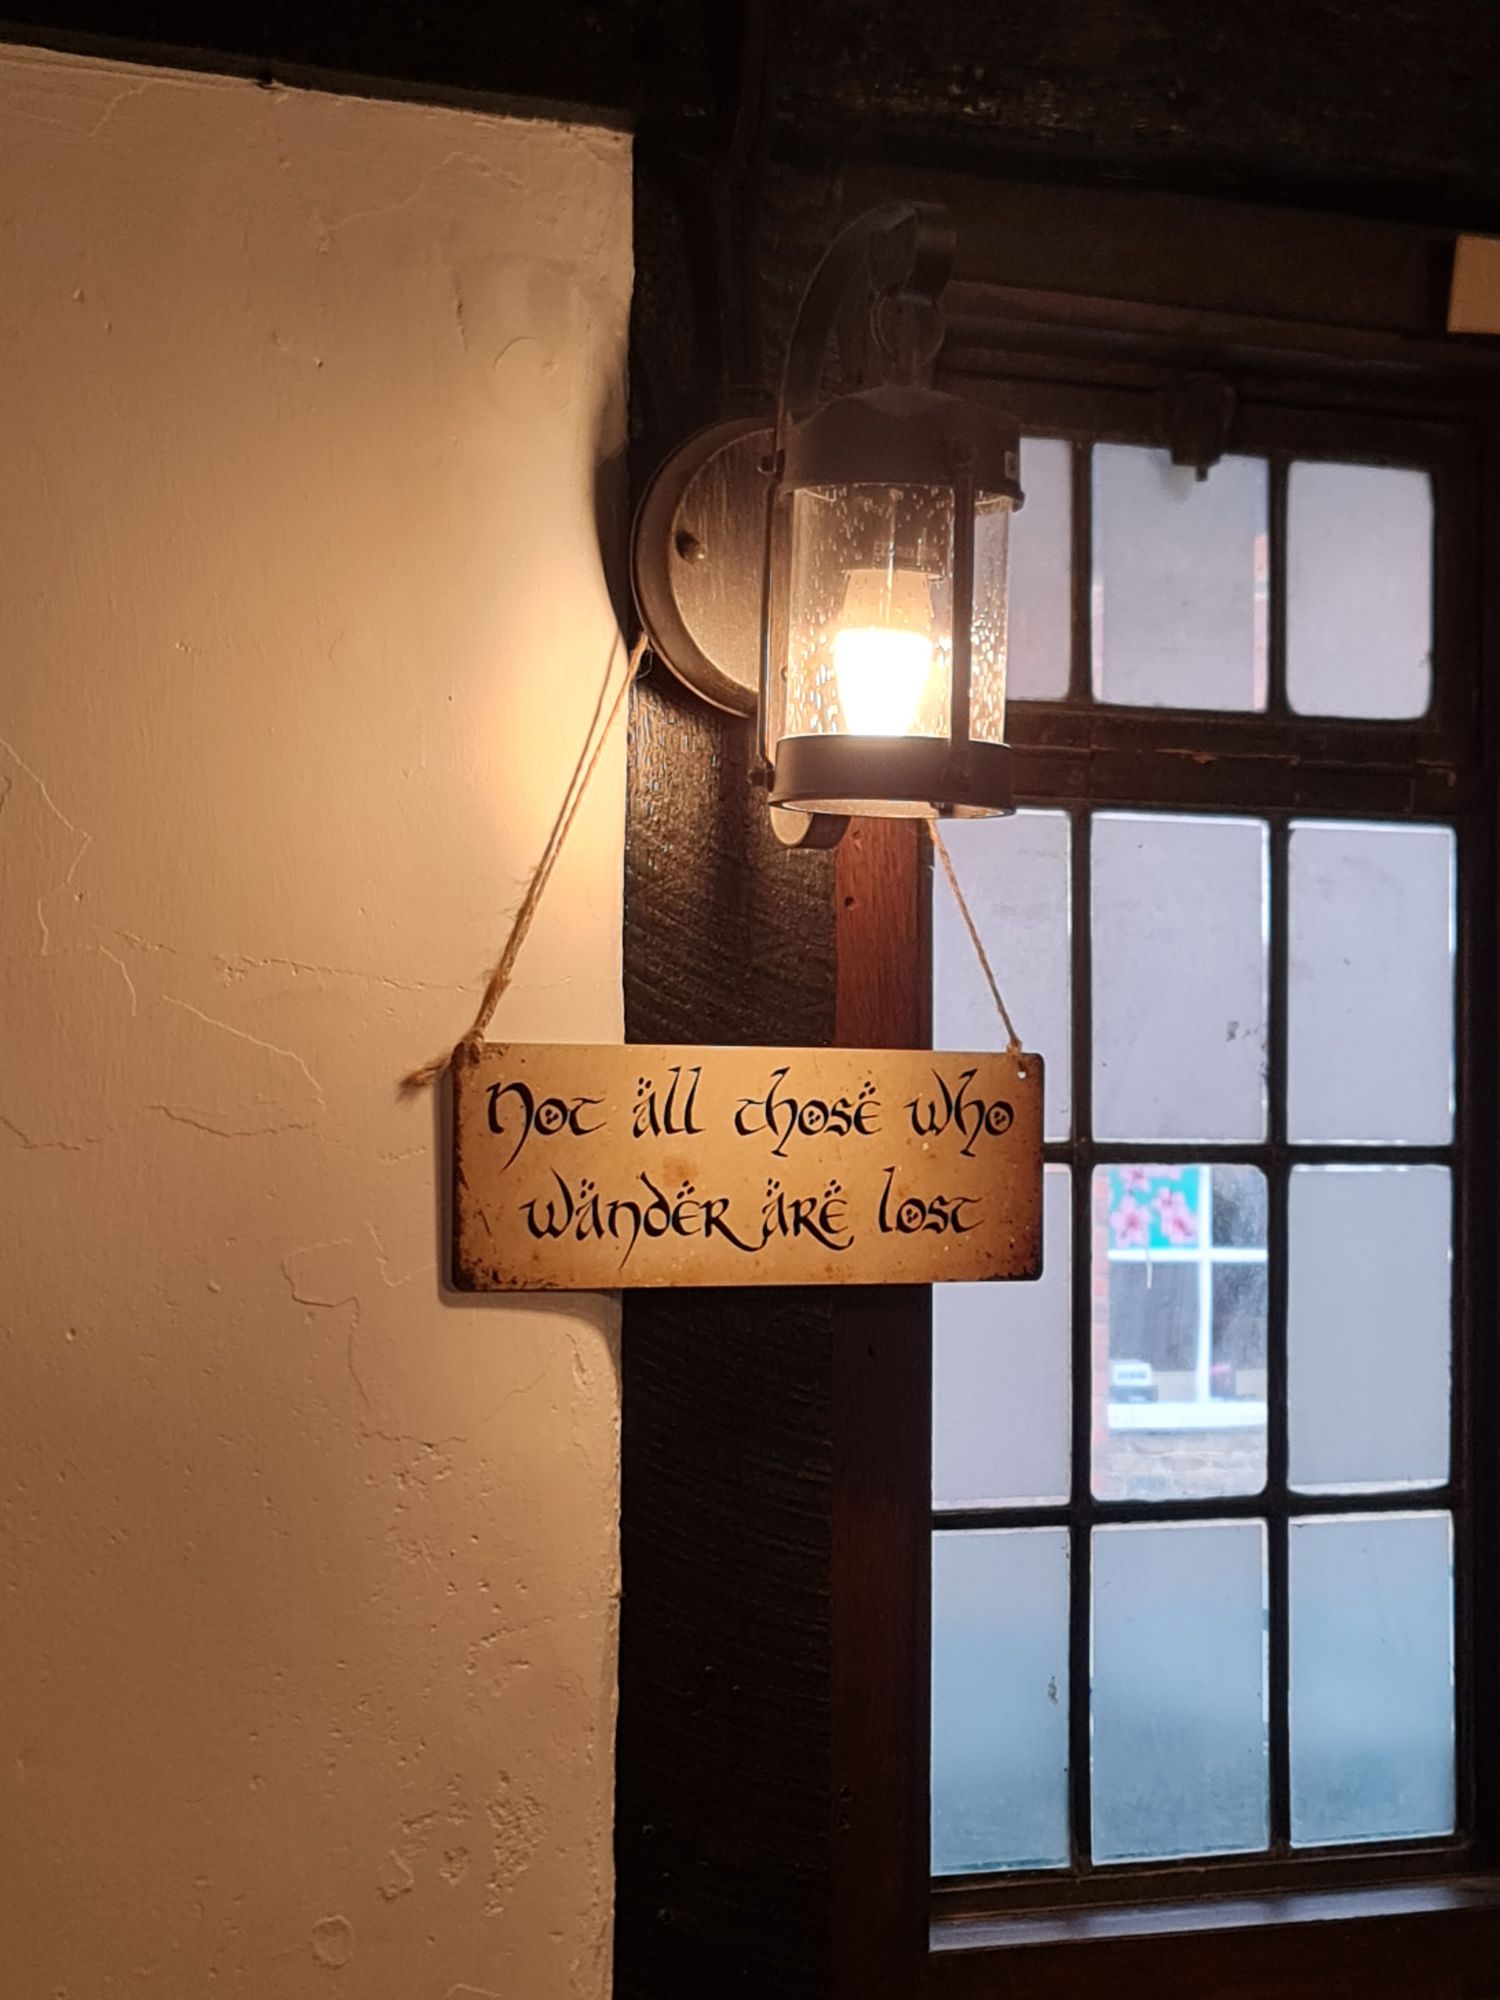 Not all those who
wander are lost